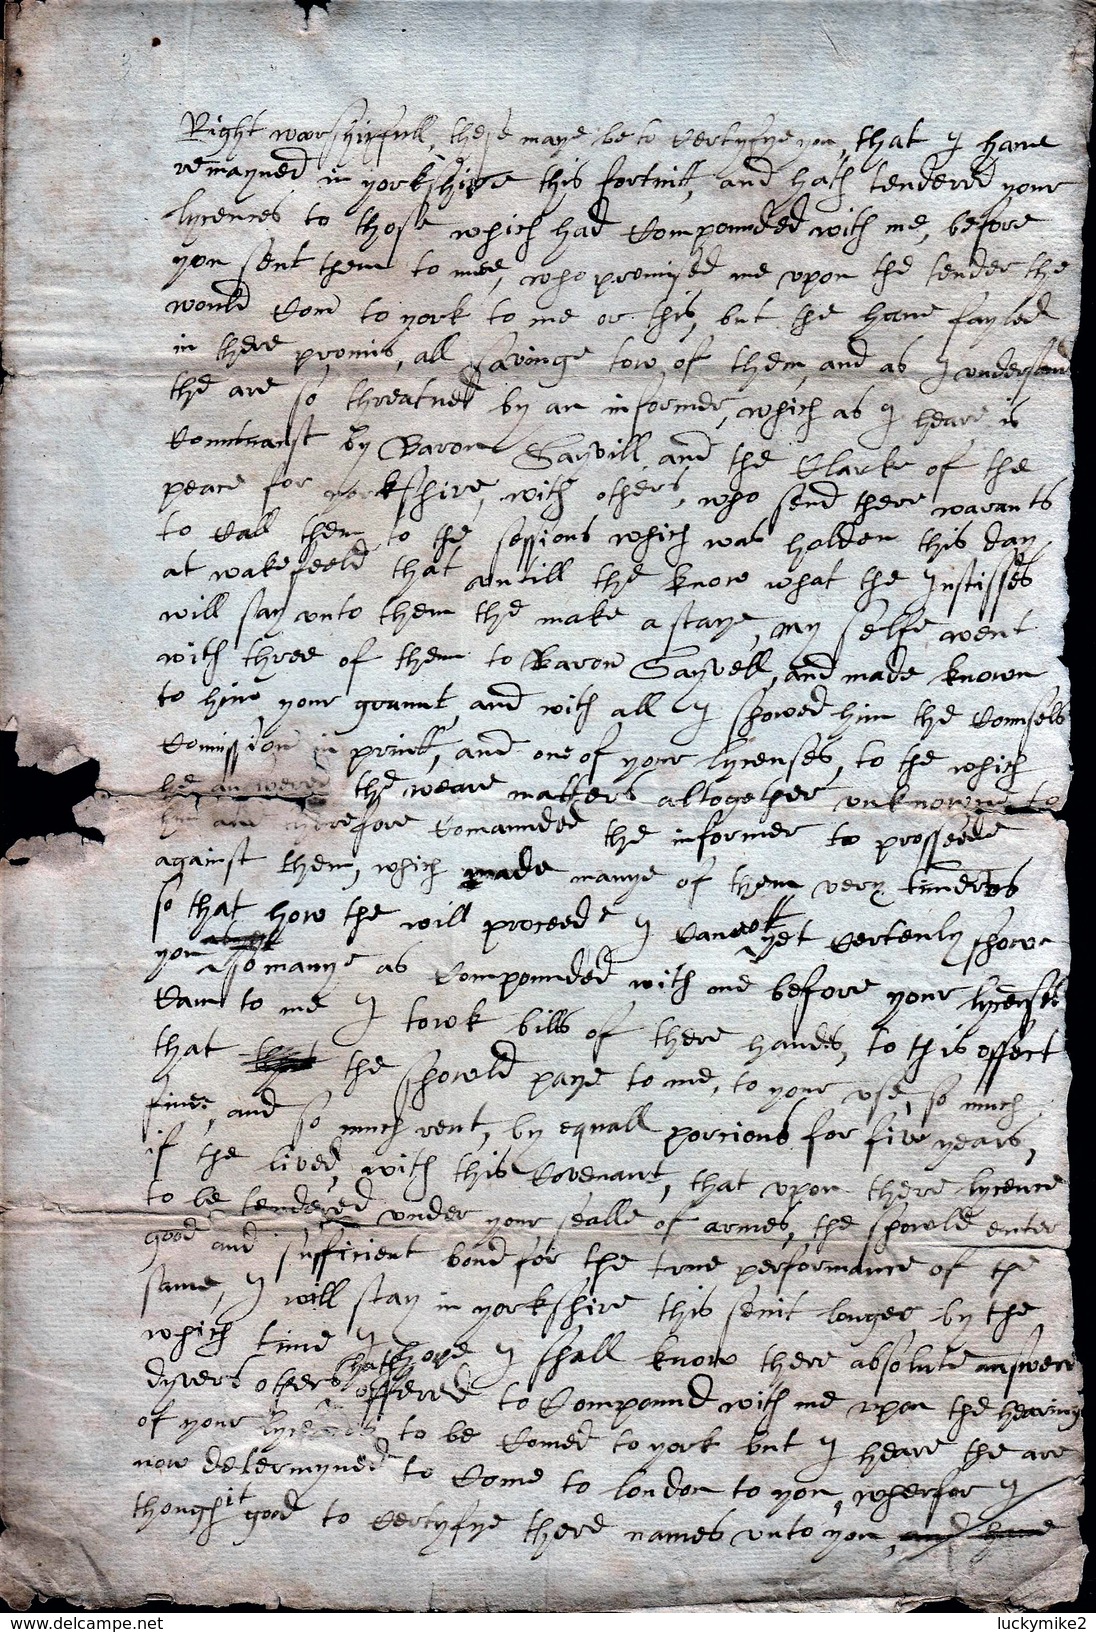 Right worshipfull, these maye be to certyfye you, that I haue
remayned in yorkshire this fortnitt, and hath tendered your
lycences to those which had compounded with me, before
you sent them to mee, who promised me upon the tender the
would com to york to me or this, but the haue fayled
in there promis, all savinge tow of them, and as I understand
the are so threatned by an informer, which as I heare is
by Baron Sayvill and the Clarke of the
peace for yorkshire, with others, who send there warants
to call them to the sessions which was holden this day
at wakefeeld that untill the know what the Justisses
will say unto them the make a staye, my selfe went
with three of them to Baron Sayvell, and made known
to him your graunt, and with all I shewed him the Counsels
Comission in printt, and one of your lycenses, to the which
he answered the weare matters altogether unknowne to
him and therefore comaunded the informer to prosseede
against them, which made manye of them very
so that how the will proceede I cannott yet certenly showe
you so manye as compounded with me before your lycenses
cam to me I towk bills of there handes, to this effect
that the showld paye to me, to your use, so much
fine, and so much rent, by equall porcions for five years,
if the lived, with this Covenant, that upon there lycence
to be tendered under your sealle of armes, the showld enter
good and sufficient bond for the true performance of the
same, I will stay in yorkshire this senit longer by the
which time I hope I shall know there absolute answere
dyvers others hath offered to Compound with me upon the hearing
of your lycences to be comed to york but I heare the are
now determyned to Come to london to you, wherfor I
thought good to certyfye there names unto you, and haue
www.delcampe.net
luckymike2